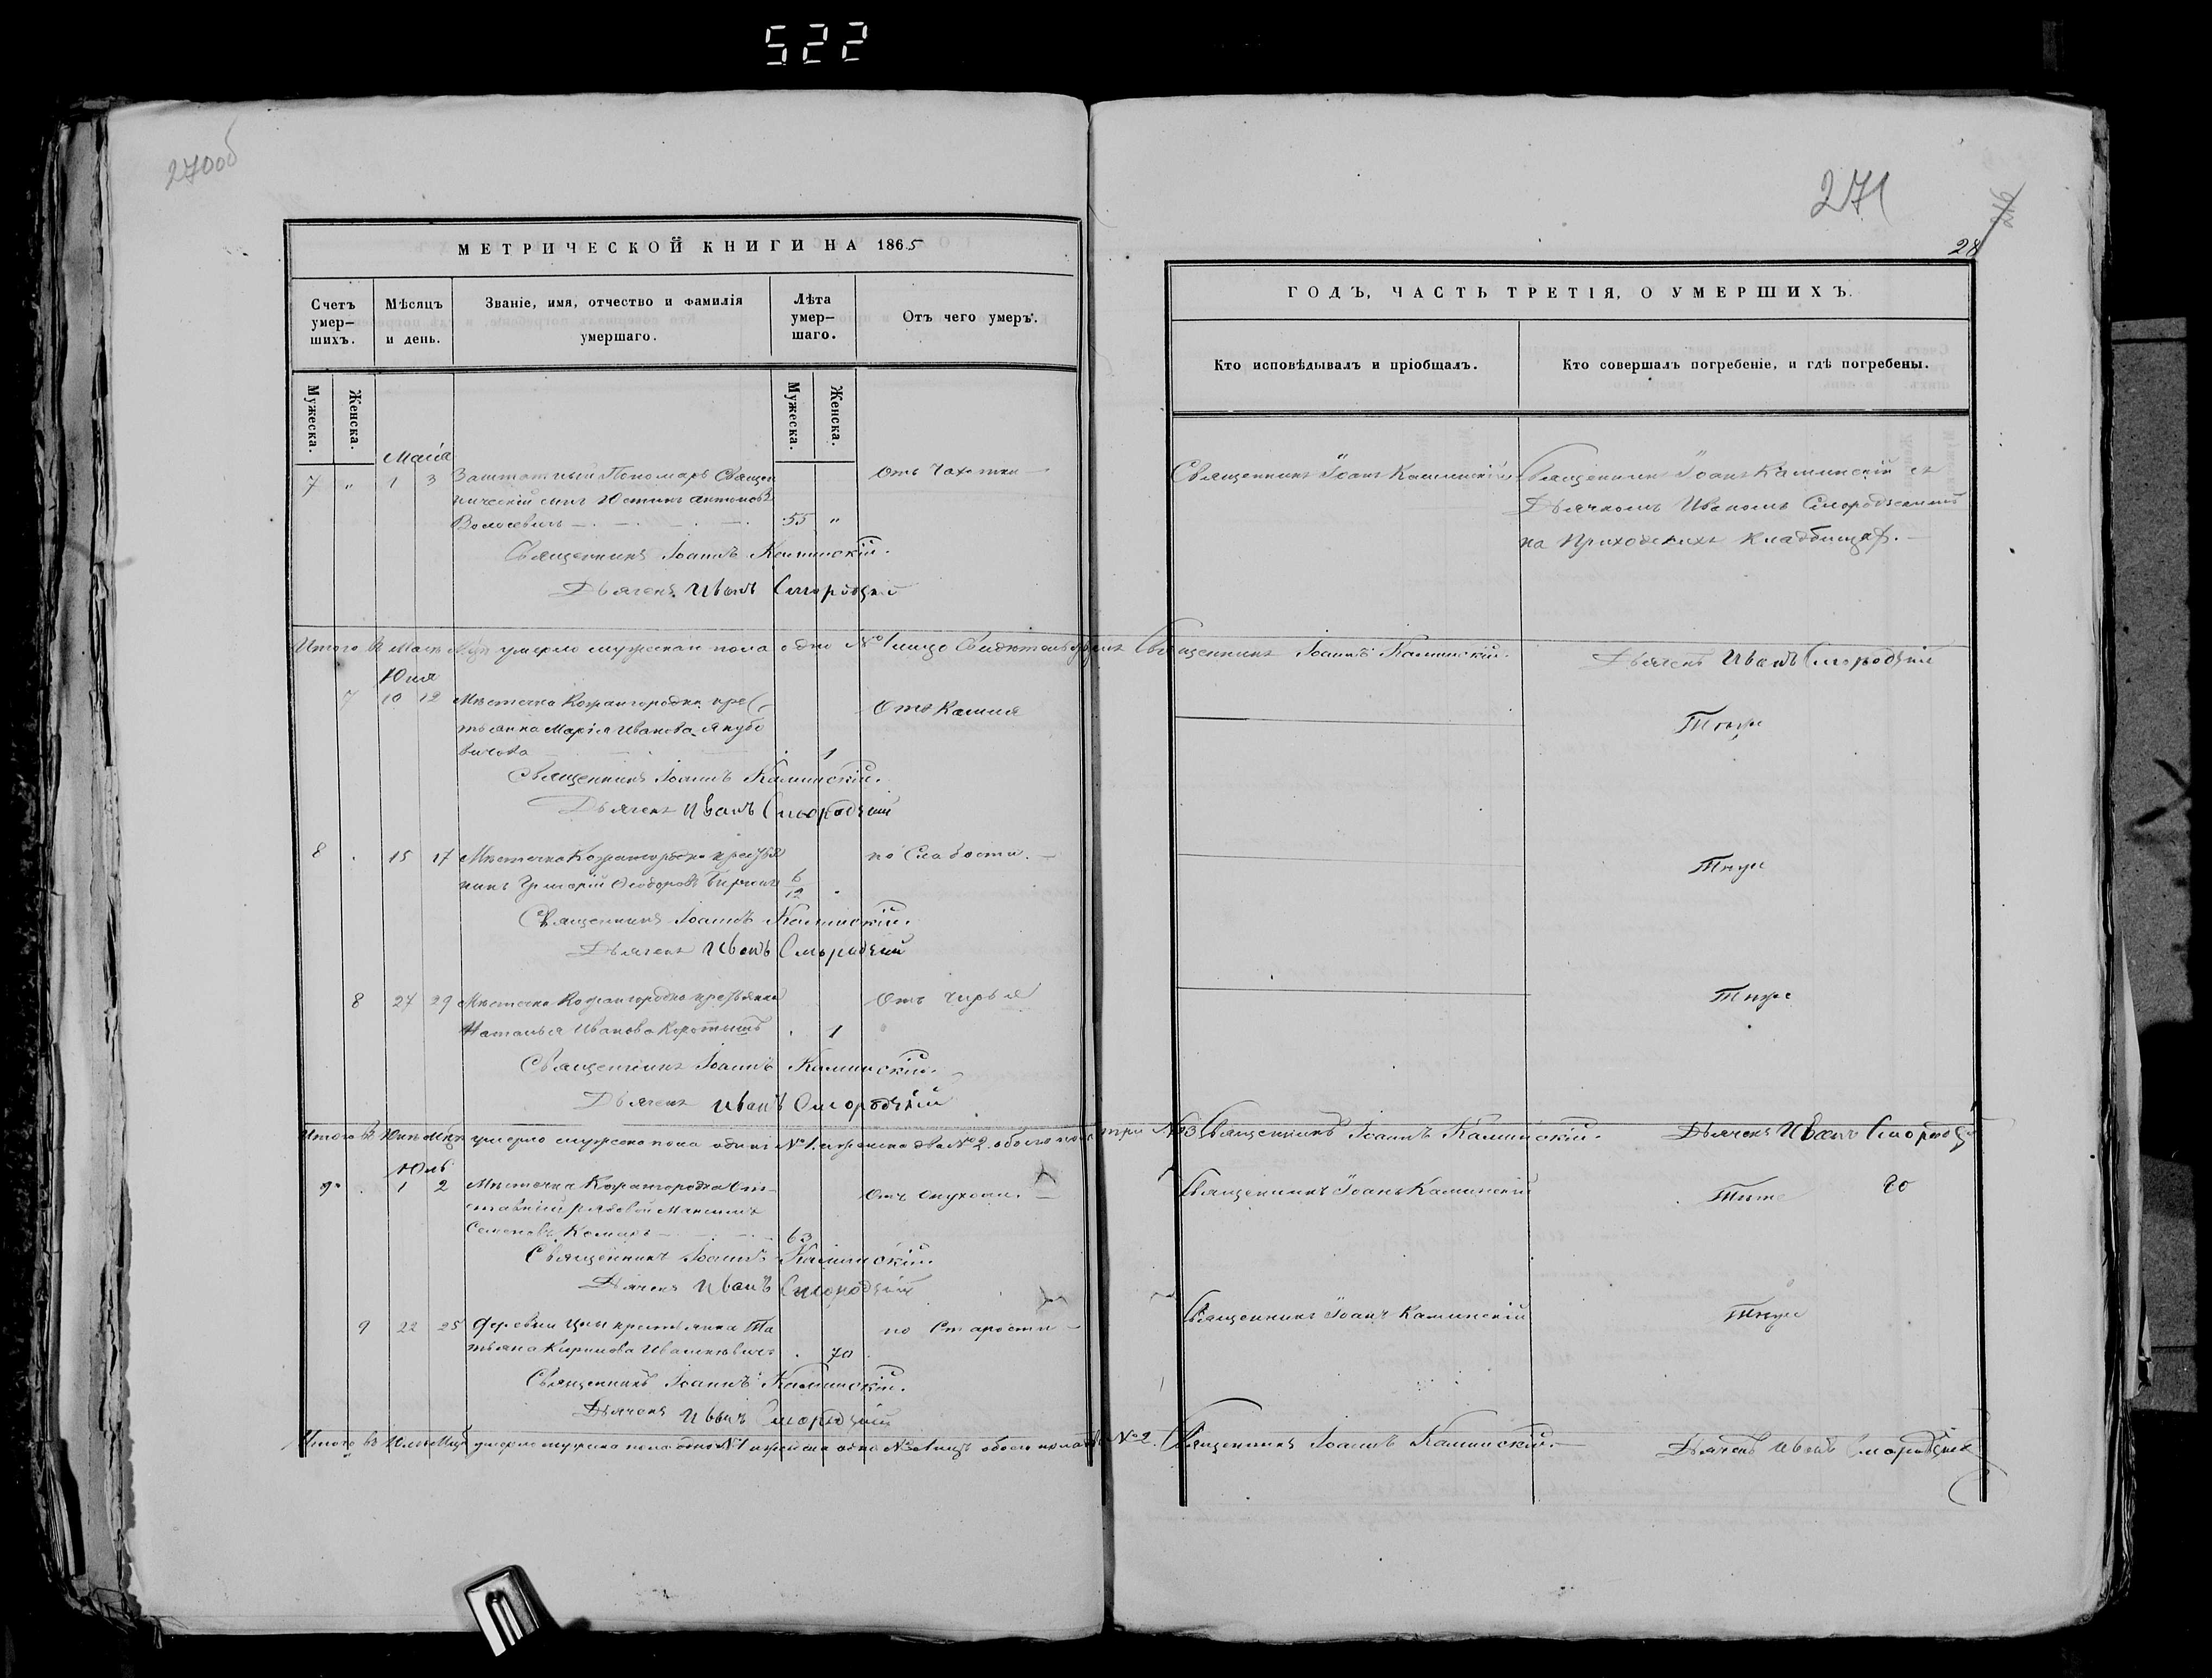 522
270об
МЕТРИЧЕСКОЙ КНИГИ НА 1865
Счетъ умер-шихъ.
Мѣсяцъ и день.
Званіе, имя, отчество и фамилія умершаго.
Лѣта умер-шаго.
Отъ чего умеръ.
Мужеска.
Женска.
Мужеска.
Женска.
Маія
7 " 1 3 Заштатный Пономарь Священ Отъ Чахотки
ническій сынъ Юстинъ Антоновъ
Волосевичь 55 "
Священникъ Іоаннъ Каминскій.
Дьячекъ Иванъ Смородскій
Итого въ Маіѣ Мцѣ умерло мужеска пола одно №1 лицо
Юня
7 10 12 Мѣстечка Кожангородка крес Отъ Кашля
тьянка Марія Иванова Якубо
вичова 1
Священникъ Іоаннъ Каминскій.
Дьячекъ Иванъ Смородскій
8 . 15 17 Мѣстечка Кожангородка крестья по Слабости.
нинъ Григорій Ѳеодоровъ 6/12 .
Священникъ Іоаннъ Каминскій.
Дьячекъ Иванъ Смородскій
8 27 29 Мѣстечка Кожангородка крестьянка Отъ Чирья
Наталья Иванова Коротышъ . 1
Священникъ Іоаннъ Каминскій.
Дьячекъ Иванъ Смородскій
Итого въ Юнѣ Мцѣ умерло мужеска пола одинъ №1. а женска два №2. обоего пола три №3
Юль
9 . 1 2 Мѣстечка Кожангородка От- Отъ Опухоли.
ставній рядовой Максимъ
Семеновъ Комаръ 63
Священникъ Іоаннъ Каминскій.
Дьячекъ Иванъ Смородскій
9 22 25 Деревни Цны крестьянка Та по Старости
тьяна Кирилова . 70
Священникъ Іоаннъ Каминскій.
Дьячекъ Иванъ Смородскій
Итого въ Юлѣ Мцѣ умерло мужска пола одно №1 а женска одно №1 лицъ обоего пола два №2.
271
28
ГОДЪ, ЧАСТЬ ТРЕТІЯ, О УМЕРШИХЪ.
Кто исповѣдывалъ и пріобщалъ.
Кто совершалъ погребеніе, и гдѣ погребены.
Священникъ Іоанъ Каминскій
Священникъ Іоанъ Каминскій съ
Дьячкомъ Иваномъ Смородскимъ
на Приходскихъ Кладбищахъ.
Священникъ Іоаннъ Каминскій. Дьячекъ Иванъ Смородскій
Тоже
Тоже
Тоже
Священникъ Іоаннъ Каминскій. Дьячекъ Иванъ Смородскій
Священникъ Іоанъ Каминскій Тоже
Священникъ Іоанъ Каминскій Тоже
Священникъ Іоаннъ Каминскій. Дьячекъ Иванъ Смородскій